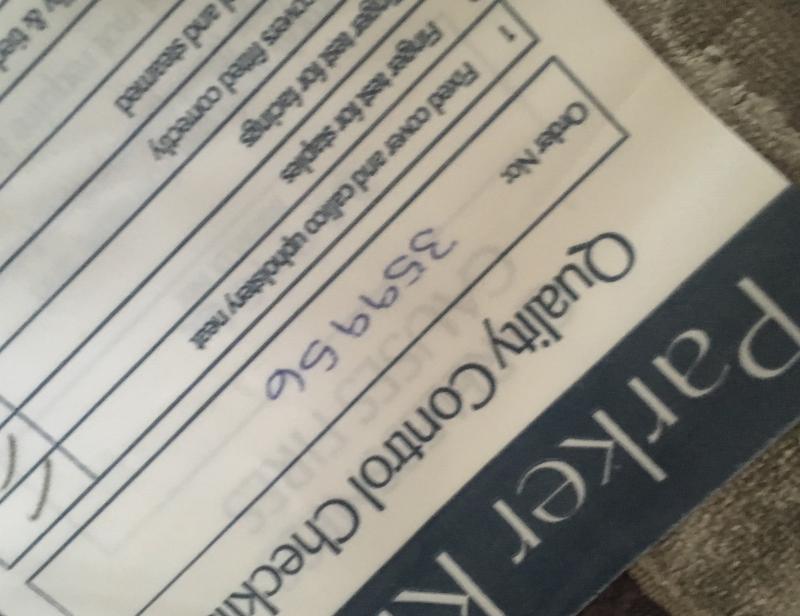 Parker K
Quality Control Checkli
Order No: 3599956
1 Fixed cover and calico upholstery neat
Finger test for staples
Finger test for facings
overs fitted correctly
d and steamed